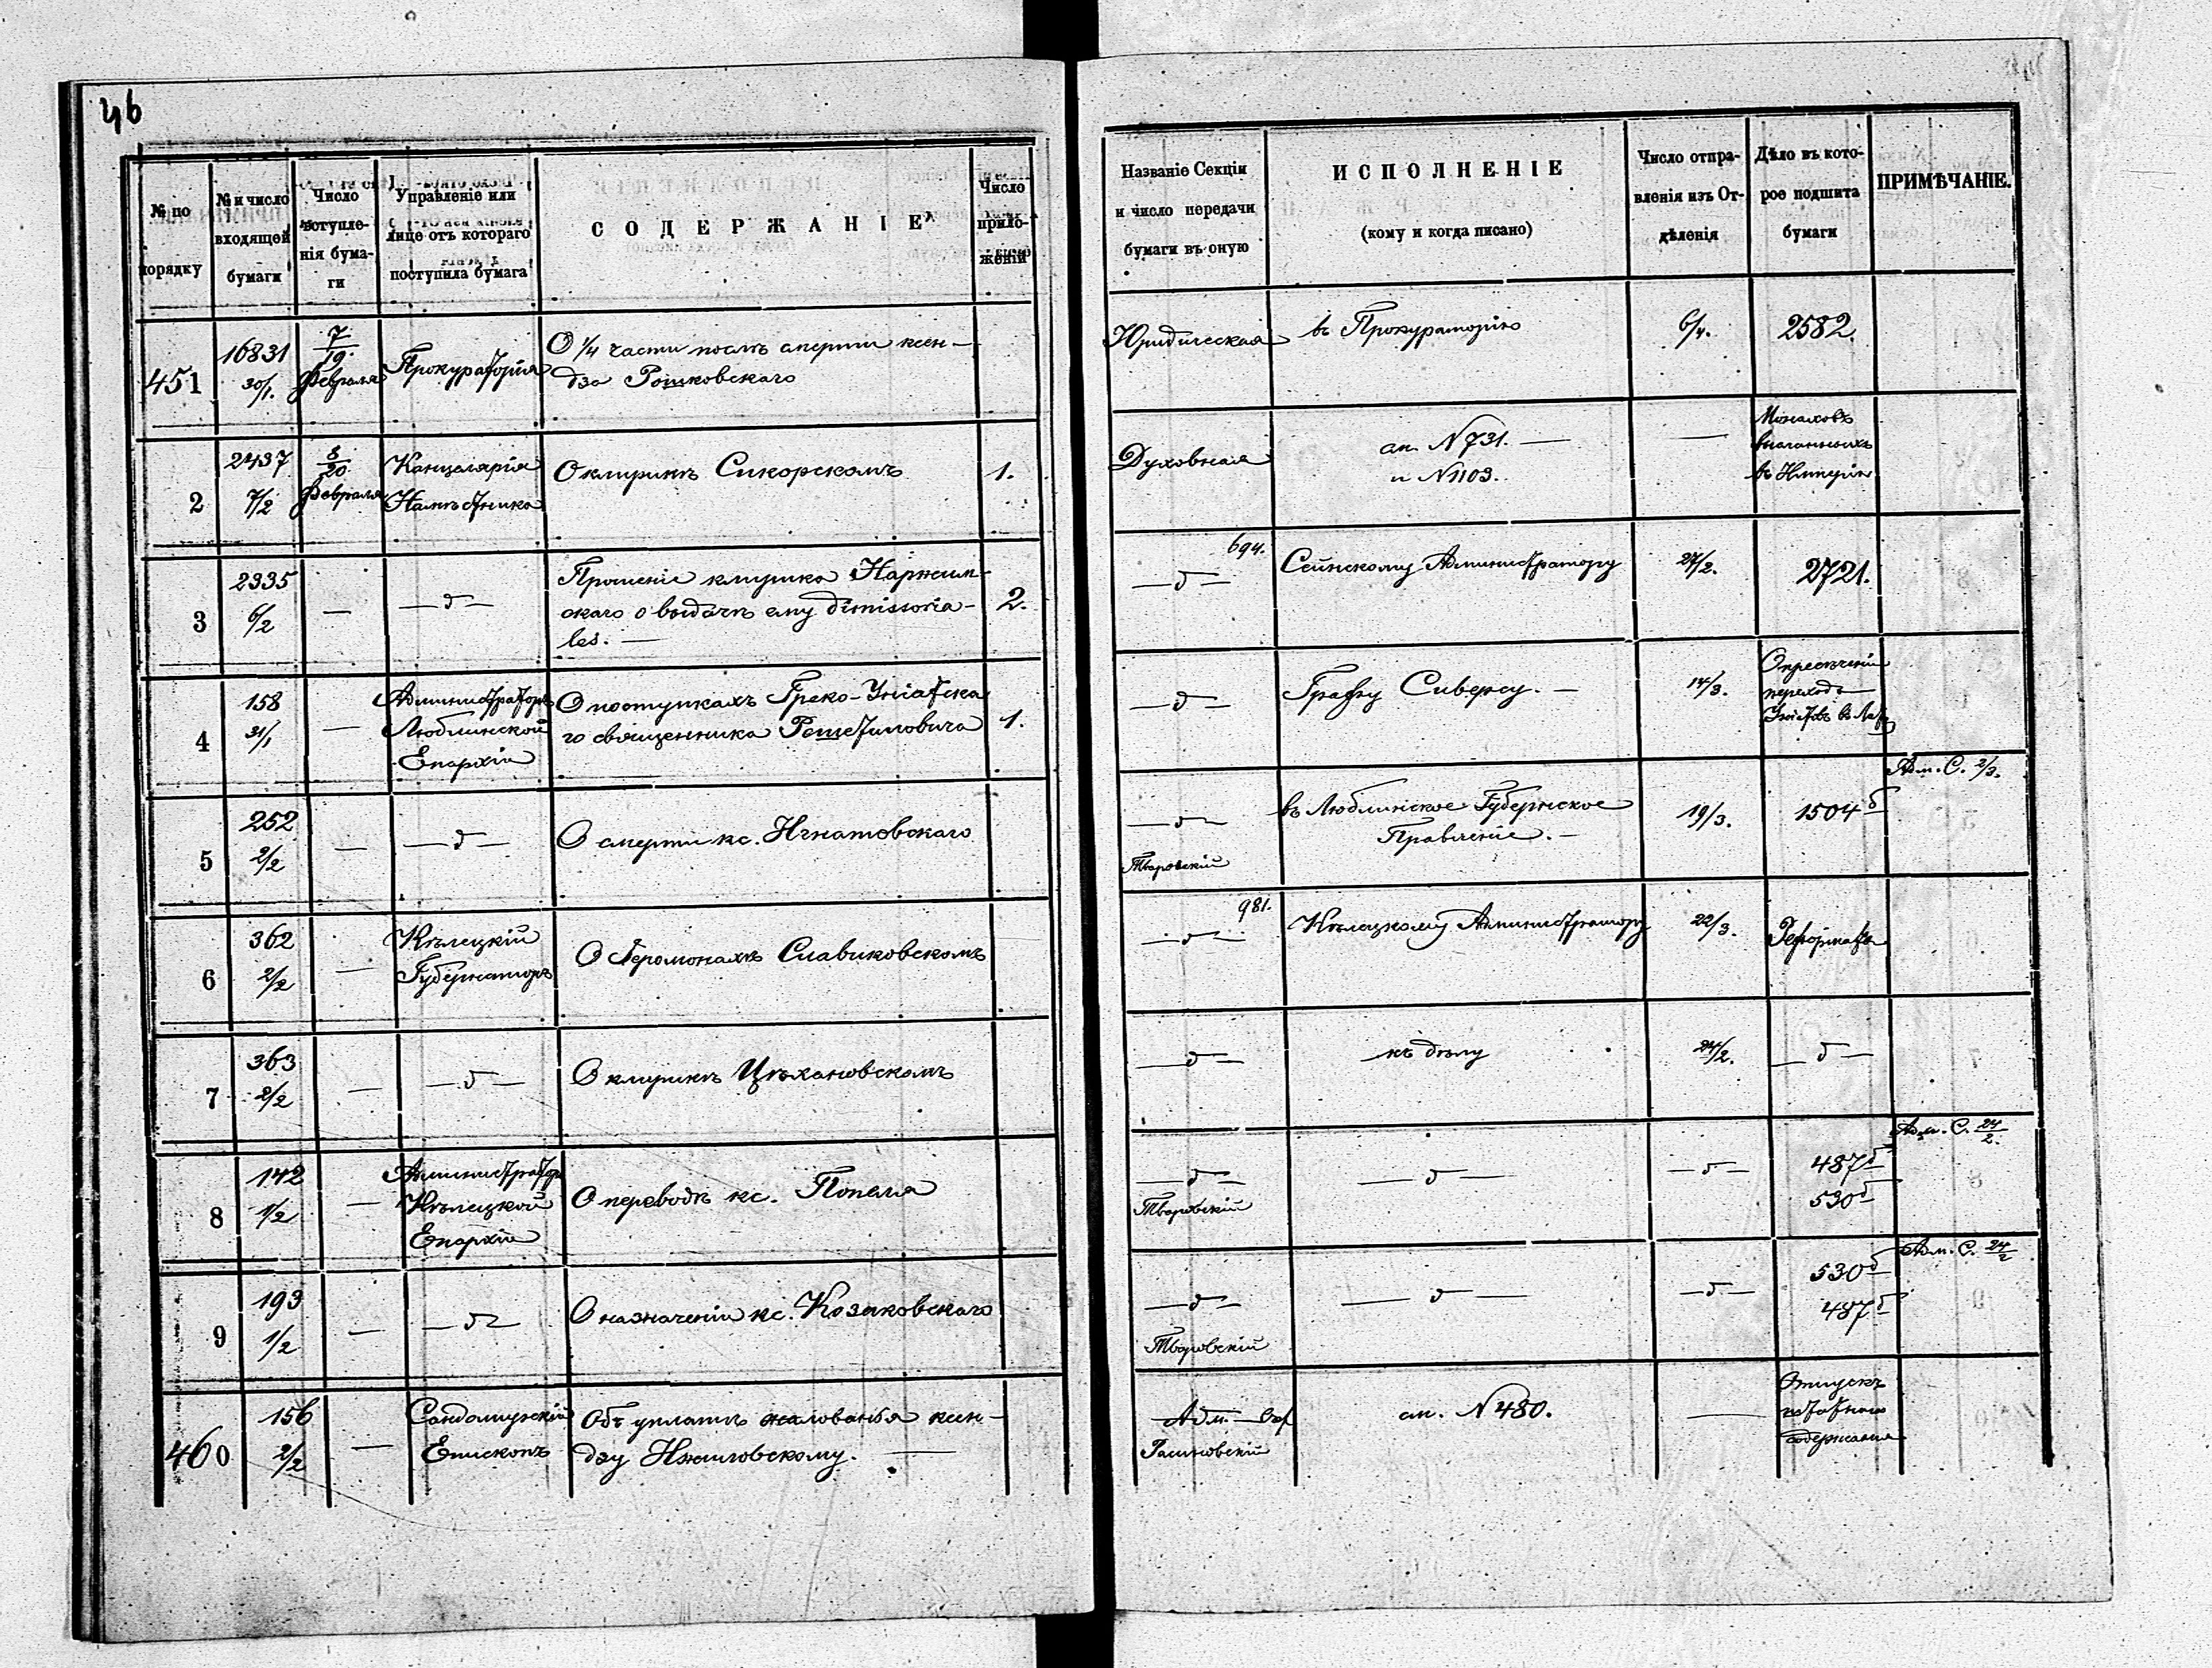 46
№ по порядку
№ и число входящей бумаги
Число поступленія бумаги
Управленіе или лице отъ котораго поступила бумага
СОДЕРЖАНІЕ
Число приложеній
Названіе Секціи и число передачи бумаги въ оную
ИСПОЛНЕНІЕ
(кому и когда писано)
Число отправленія изъ Отдѣленія
Дѣло въ которое подшита бумаги
ПРИМѢЧАНІЕ.
451
16831
30/1.
7/19.
Февраля
Прокураторія
О 1/4 части послѣ смерти ксен-
дза Рошковскаго
Юридическая
въ Прокураторію
6/4.
2582.
2
2437
7/2
8/20
Февраля
Канцелярія
Намѣстника
О клирикѣ Сикорскомъ
1.
Духовная
сп. N 731. —
и N 1103.
—
Монаховъ
высланныхъ
въ Имперію
3
2335
6/2
—
— д —
Прошеніе клирика Наржим-
скаго о выдачѣ ему dimissoria-
les. —
2.
694.
— д —
Сейнскому Администратору
27/2.
2721.
4
158
31/1
—
Администраторъ
Люблинской
Епархіи
О поступкахъ Греко-Уніатска
го священника Решетиловича
1.
— д —
Графу Сиверсу. —
14/3.
О пресѣченіи
перехода
Уніатовъ въ Лат
5
252
2/2
—
— д —
О смерти кс. Игнатовскаго
— д —
Тваровскій
въ Люблинское Губернское
Правленіе. —
19/3.
1504 б
Адм. С. 2/3.
6
362
2/2
—
Кѣлецкій
Губернаторъ
О Іеромонахѣ Славиковскомъ
981.
— д —
Кѣлецкому Администратору
22/3.
Реформаты
7
363
2/2
—
— д —
О клирикѣ Цѣхановскомъ
— д —
къ дѣлу
24/2.
— д —
8
142
1/2
—
Администраторъ
Кѣлецкой
Епархіи
О переводѣ кс. Попеля
— д —
Тваровскій
— д —
— д —
487 б
530 б
Адм. С. 24/2.
9
193
1/2
—
— д —
О назначеніи кс. Козаковскаго
— д —
Тваровскій
— д —
— д —
530 б
487 б
Адм. С. 24/2
460
156
2/2
—
Сандомирскій
Епископъ
Объ уплатѣ жалованья ксен-
дзу Нжиловскому. —
Адм.
сп. N 480.
—
Отпускъ
штатнаго
содержанія